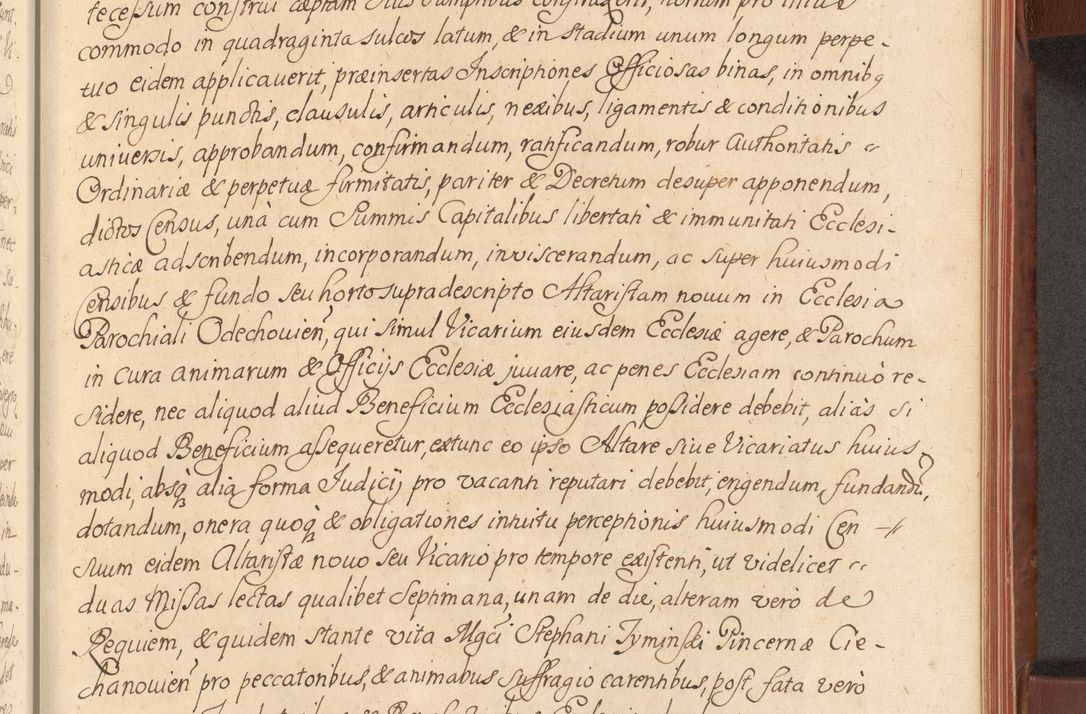 commodo in quadraginta sulcos latum, & in stadium unum longum perpe-
tuo eidem applicauerit, præinsertas Inscriptiones Officiosas binas, in omnibꝰ
& singulis punctis, clausulis, articulis, nexibus, ligamentis & conditionibus
uniuersis, approbandum, confirmandum, ratificandum, robur Authoritatis
Ordinariæ & perpetuæ firmitatis, pariter & Decretum desuper apponendum,
dictos Census, unà cum Summis Capitalibus libertati & immunitati Ecclesi-
asticæ adscribendum, incorporandum, inviscerandum, ac super huiusmodi
Censibus & fundo seu horto supradescripto Altaristam nouum in Ecclesia
Parochiali Odechouien̄, qui simul Vicarium eiusdem Ecclesiæ agere, & Parochum
in cura animarum & Officijs Ecclesiæ juuare, ac penes Ecclesiam continuò re-
sidere, nec aliquod aliud Beneficium Ecclesiasticum poßidere debebit, aliàs si
aliquod Beneficium assequeretur, extunc eo ipso Altare siue Vicariatus huius
modi, absq̨ alia forma Judicij pro vacanti reputari debebit, erigendum, fundandū,
dotandum, onera quoq̨ & obligationes intuitu perceptionis huiusmodi Cen
suum eidem Altaristæ nouo seu Vicario pro tempore existenti, ut videlicet
duas Mißas lectas qualibet Septimana, unam de die, alteram verò de
Requiem, & quidem stante vita Mgcī Stephani Tyminski Pincernæ Cie-
chanouien̄ pro peccatoribus, & animabus suffragio carentibus, post fata verò